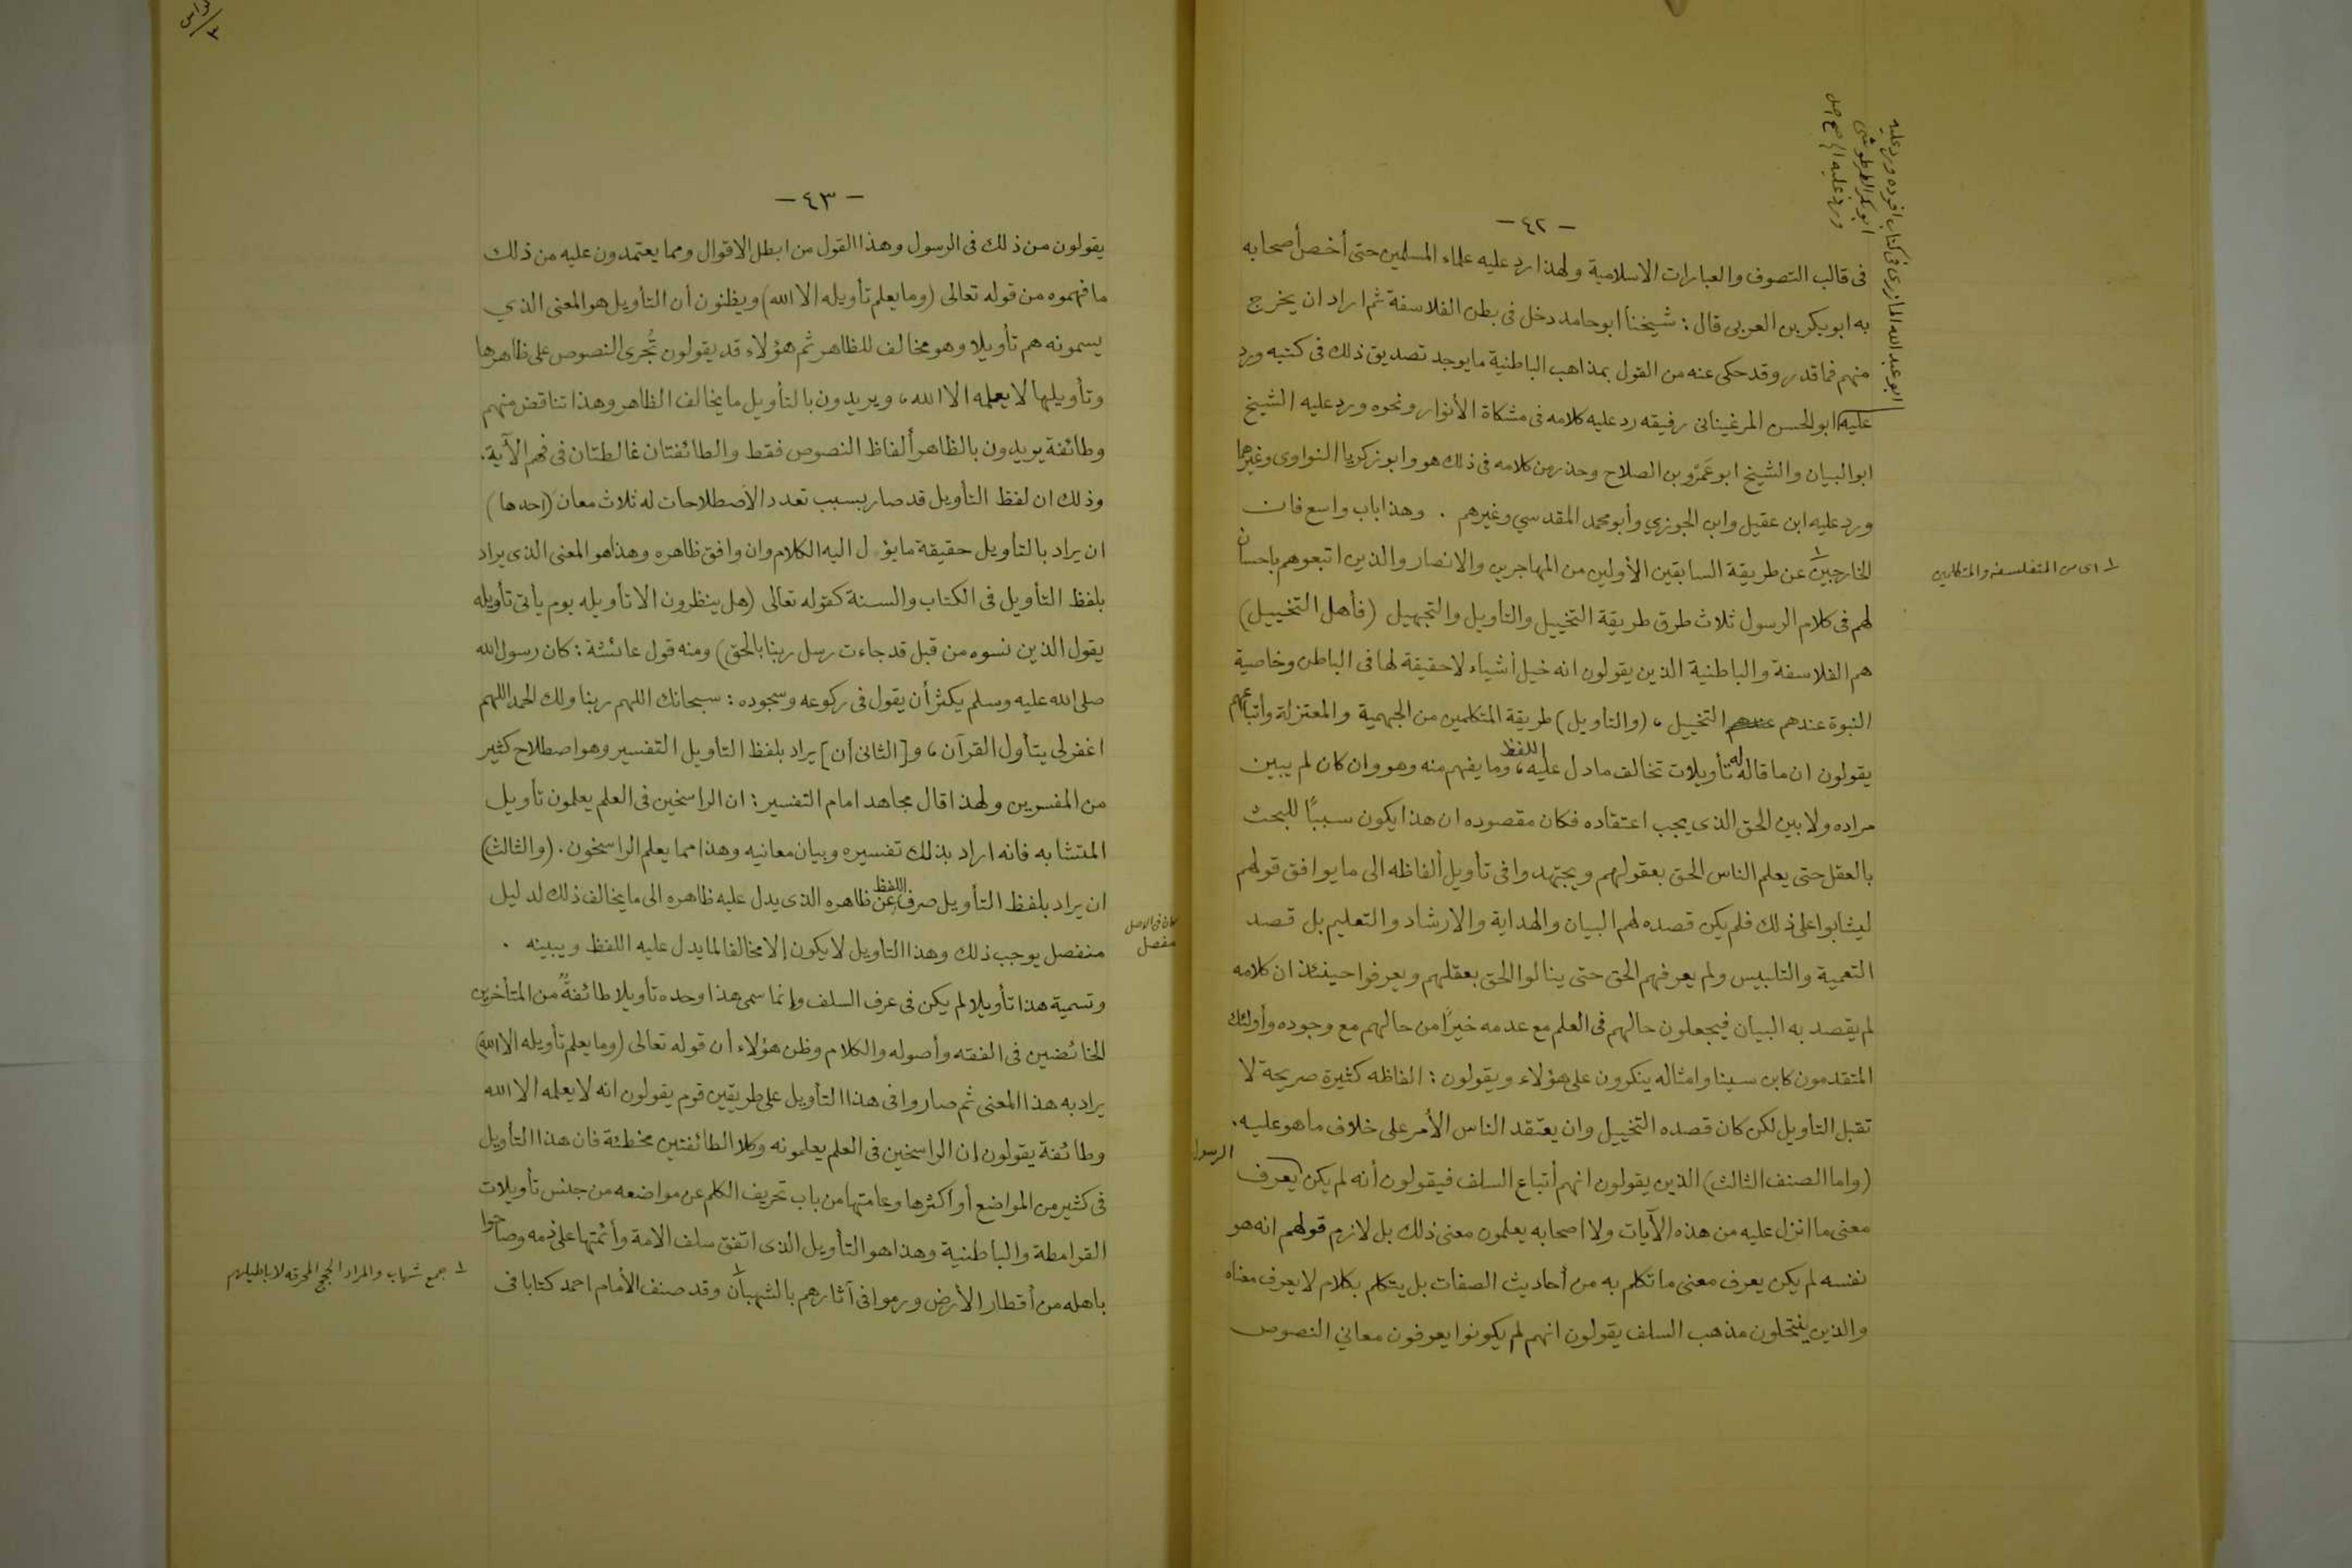 ابو عبد الله المازرى فى كتاب افرده ورد عليه
ابو بكر الطرطوشى
ورد عليه
- ٤٢ -
فى قالب التصوف والعبارات الاسلامية ولهذا رد عليه علماء المسلمين حتى أخص أصحابه
به ابو بكر بن العربى قال : شيخنا ابو حامد دخل فى بطن الفلاسفة ثم اراد ان يخرج
منهم فما قدر وقد حكى عنه من القول بمذاهب الباطنية ما يوجد تصديق ذلك فى كتبه ورد
عليه ابو الحسن المرغينانى رفيقه رد عليه كلامه فى مشكاة الأنوار ونحوه ورد عليه الشيخ
ابو البيان والشيخ ابو عَمرو بن الصلاح وحذر من كلامه فى ذلك هو وابو زكريا النواوى وغيرهما
ورد عليه ابن عقيل وابن الجوزي وأبو محمد المقدسي وغيرهم . وهذا باب واسع فان
الخارجين ١ عن طريقة السابقين الأولين من المهاجرين والانصار والذين اتبعوهم باحسان
١ اى من المتفلسفه والمتكلمين
لهم فى كلام الرسول ثلاث طرق طريقة التخييل والتاويل والتجهيل (فأهل التخييل)
هم الفلاسفة والباطنية الذين يقولون انه خيل أشياء لا حقيقة لها فى الباطن وخاصية
النبوة عندهم عندهم التخييل ، (والتاويل) طريقة المتكلمين من الجهمية والمعتزلة وأتباعهم
يقولون ان ما قاله له تأويلات تخالف ما دل عليه اللفظ ، وما يفهم منه وهو وان كان لم يبين
مراده ولا بين الحق الذى يجب اعتقاده فكان مقصوده ان هذا يكون سببًا للبحث
بالعقل حتى يعلم الناس الحق بعقولهم ويجتهدوا فى تأويل ألفاظه الى ما يوافق قولهم
ليثابوا على ذلك فلم يكن قصده لهم البيان والهداية والارشاد والتعليم بل قصد
التعمية والتلبيس ولم يعرفهم الحق حتى ينالوا الحق بعقلهم ويعرفوا حينئذ ان كلامه
لم يقصد به البيان فيجعلون حالهم فى العلم مع عدمه خيرًا من حالهم مع وجوده وأولئك
المتقدمون كابن سينا وامثاله ينكرون على هؤلاء ويقولون : الفاظه كثيرة صريحة لا
تقبل التاويل لكن كان قصده التخييل وان يعتقد الناس الأمر على خلاف ما هو عليه .
(واما الصنف الثالث) الذين يقولون انهم أتباع السلف فيقولون أنه لم يكن يعرف الرسول
معنى ما انزل عليه من هذه الآيات ولا اصحابه يعلمون معنى ذلك بل لازم قولهم انه هو
نفسه لم يكن يعرف معنى ما تكلم به من أحاديث الصفات بل يتكلم بكلام لا يعرف معناه
والذين ينتحلون مذهب السلف يقولون انهم لم يكونوا يعرفون معاني النصوص
٣
- ٤٣ -
يقولون من ذلك فى الرسول وهذا القول من ابطل الاقوال ومما يعتمدون عليه من ذلك
ما فهموه من قوله تعالى (وما يعلم تأويله الا الله) ويظنون أن التأويل هو المعنى الذي
يسمونه هم تأويلا وهو مخالف للظاهر ثم هؤلاء قد يقولون تُجرى النصوص على ظاهرها
وتأويلها لا يعلمه الا الله ، ويريدون بالتأويل ما يخالف الظاهر وهذا تناقض منهم
وطائفة يريدون بالظاهر ألفاظ النصوص فقط والطائفتان غالطتان فى فهم الآية .
وذلك ان لفظ التأويل قد صار بسبب تعدد الاصطلاحات له ثلاث معان (احدها)
ان يراد بالتأويل حقيقة ما يؤل اليه الكلام وان وافق ظاهره وهذا هو المعنى الذى يراد
بلفظ التأويل فى الكتاب والسنة كقوله تعالى (هل ينظرون الا تأويله يوم يأتى تأويله
يقول الذين نسوه من قبل قد جاءت رسل ربنا بالحق) ومنه قول عائشة : كان رسول الله
صلى الله عليه وسلم يكثر أن يقول فى ركوعه وسجوده : سبحانك اللهم ربنا ولك الحمد اللهم
اغفر لى يتأول القرآن ، و[الثانى أن] يراد بلفظ التأويل التفسير وهو اصطلاح كثير
من المفسرين ولهذا قال مجاهد امام التفسير : ان الراسخين فى العلم يعلمون تأويل
المتشابه فانه اراد بذلك تفسيره وبيان معانيه وهذا مما يعلم الراسخون . (والثالث)
ان يراد بلفظ التأويل صرف اللفظ عن ظاهره الذى يدل عليه ظاهره الى ما يخالف ذلك لدليل
منفصل يوجب ذلك وهذا التاويل لا يكون إلا مخالفا لما يدل عليه اللفظ ويبينه .
كان فى الاصل
مفصل
وتسمية هذا تأويلا لم يكن فى عرف السلف وإنما سمى هذا وحده تأويلا طائفةٌ من المتأخرين
الخائضين فى الفقه وأصوله والكلام وظن هؤلاء أن قوله تعالى (وما يعلم تأويله الا الله)
يراد به هذا المعنى ثم صاروا فى هذا التأويل على طريقين قوم يقولون انه لا يعلمه الا الله
وطائفة يقولون إن الراسخين فى العلم يعلمونه وكلا الطائفتين مخطئة فان هذا التأويل
فى كثير من المواضع أو اكثرها وعامتها من باب تحريف الكلم عن مواضعه من جنس تأويلات
القرامطة والباطنية وهذا هو التأويل الذى اتفق سلف الامة وأئمتها على ذمه وصاحوا
باهله من أقطار الأرض ورموا فى آثارهم بالشهبان ١ وقد صنف الأمام احمد كتابا فى
١ جمع شهاب والمراد الحجج المحرقه لاباطيلهم